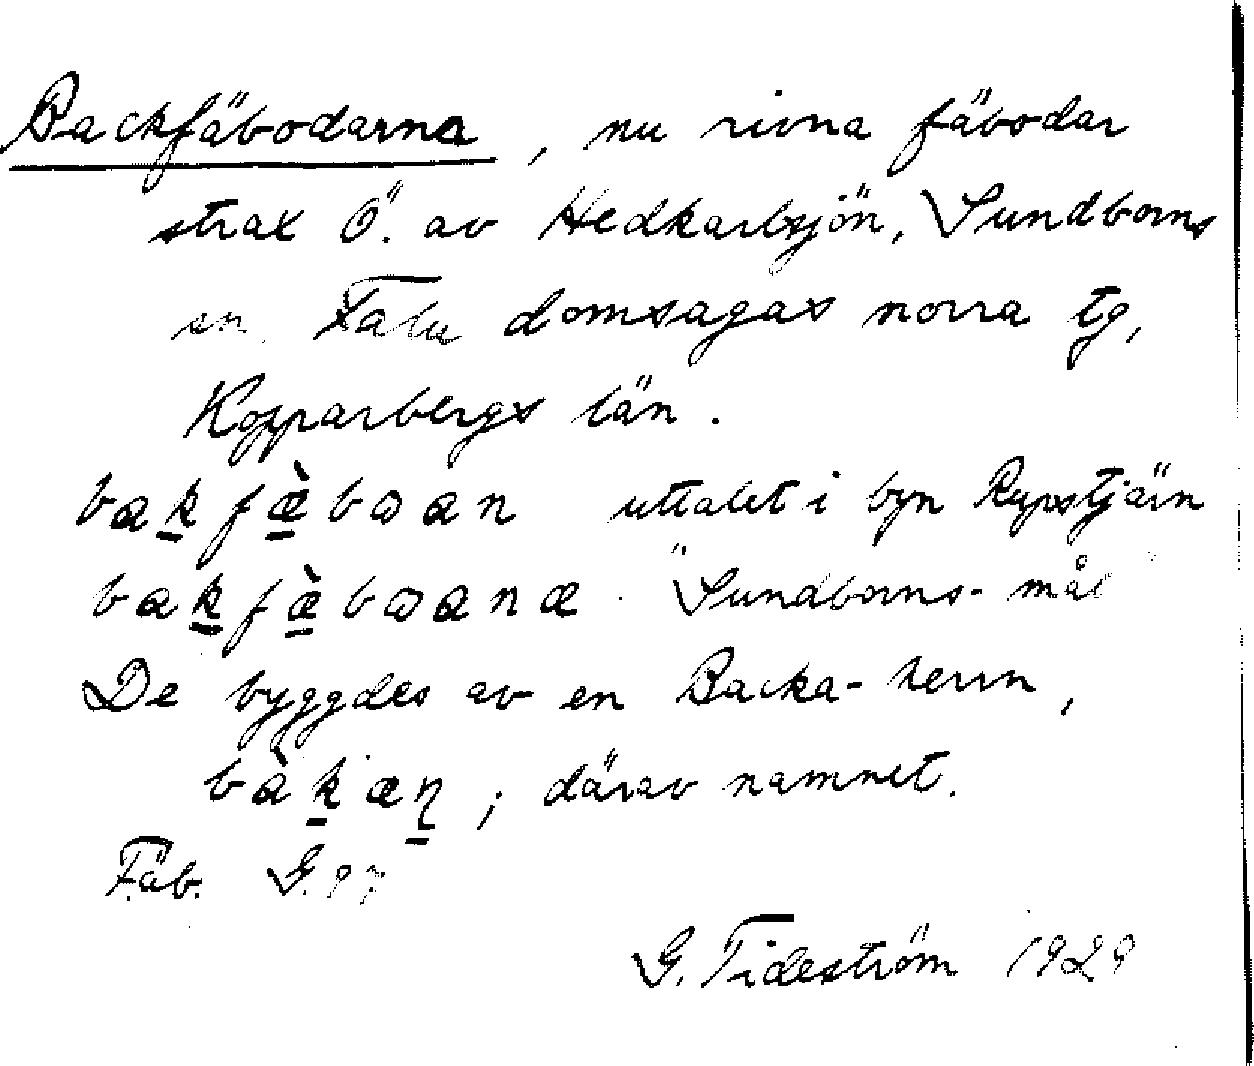 Backfäbodarna, nu rivna fäbodar
strax Ö. av Hedkarlssjön, Sundborns
sn. Falu domsagas norra tg,
Kopparbergs län.
bakfæ̀bωan uttalet i byn Rupstjärn
bakfæ̀bωanæ Sundborns-mål
De byggdes av en Backa-herrn,
bàkæn; därav namnet.
Fäb. G. 97
G. Tideström 1929